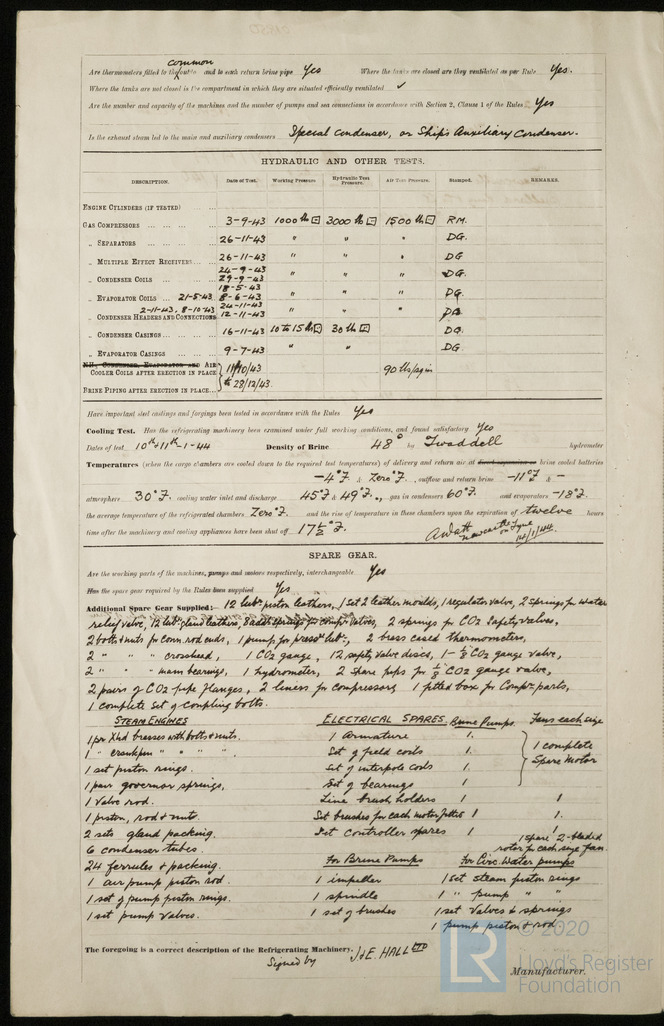 common
Are thermometers filled to the outlet and to each return brine pipe Yes Where the tanks are closed are they ventilated as per Rule Yes.
Where the tanks are not closed is the compartment in which they are situated efficiently ventilated ✓
Are the number and capacity of the machines and the number of pumps and sea connections in accordance with Section 2, Clause 1 of the Rules Yes
Is the exhaust steam led to the main and auxiliary condensers Special Condenser, or Ship's Auxiliary Condenser.
HYDRAULIC AND OTHER TESTS.
DESCRIPTION. Date of Test. Working Pressure. Hydraulic Test Pressure. Air Test Pressure. Stamped. REMARKS.
ENGINE CYLINDERS (IF TESTED)
GAS COMPRESSORS 3-9-43 1000 lb 3000 lb 1500 lb R.M.
" SEPARATORS 26-11-43 " " " DG.
" MULTIPLE EFFECT RECEIVERS 26-11-43 " " " DG
24-9-43
" CONDENSER COILS 29-9-43 " " " DG.
18-5-43
" EVAPORATOR COILS 21-5-43 8-6-43 " " " DG.
2-11-43, 8-10-43 24-11-43
" CONDENSER HEADERS AND CONNECTIONS 12-11-43 " " DG
" CONDENSER CASINGS 16-11-43 10 to 15 lb 30 lb DG.
" EVAPORATOR CASINGS 9-7-43 " " DG
N.H., CONDENSER, EVAPORATOR AND AIR
COOLER COILS AFTER ERECTION IN PLACE 11/10/43 90 lbs/sq in
BRINE PIPING AFTER ERECTION IN PLACE to 28/12/43
Have important steel castings and forgings been tested in accordance with the Rules Yes
Cooling Test. Has the refrigerating machinery been examined under full working conditions, and found satisfactory Yes
Dates of test 10th & 11th-1-44 Density of Brine 48° by Twaddell hydrometer
Temperatures (when the cargo chambers are cooled down to the required test temperatures) of delivery and return air at brine cooled batteries
-4°F & Zero°F., outflow and return brine -11°F & -
atmosphere 30°F. cooling water inlet and discharge 45°F & 49°F., gas in condensers 60°F. and evaporators -18°F.
the average temperature of the refrigerated chambers Zero°F. and the rise of temperature in these chambers upon the expiration of twelve hours
time after the machinery and cooling appliances have been shut off 17½°F. A Watt Newcastle on Tyne 14/1/44
SPARE GEAR.
Are the working parts of the machines, pumps and motors respectively, interchangeable Yes
Has the spare gear required by the Rules been supplied Yes
Additional Spare Gear Supplied:- 12 lubr. piston leathers, 1 set 2 leather moulds, 1 regulator valve, 2 springs for water
relief valve, 12 lubr. gland leathers, 8 addl springs for compr valves, 2 springs for CO2 safety valves,
2 bolts & nuts for conn. rod ends, 1 pump for press lubr., 2 brass cased thermometers,
2 " " " crosshead, 1 CO2 gauge, 12 safety valve discs, 1 - ⅛ CO2 gauge valve,
2 " " " main bearings, 1 hydrometer, 2 spare pops for ⅛ CO2 gauge valve,
2 pairs of CO2 pipe flanges, 2 liners for compressors 1 fitted box for Compr parts,
1 complete set of coupling bolts.
STEAM ENGINES ELECTRICAL SPARES Brine Pumps. Fans each size
1 pr Xhd brasses with bolts & nuts. 1 Armature 1.
1 " crankpin " " " " Set of field coils 1. 1 complete
1 set piston rings. Set of interpole coils 1. Spare Motor
1 pair governor springs, Set of bearings 1
1 valve rod. Line brush holders 1 1
1 piston, rod & nuts. Set brushes for each motor fitted 1 1.
2 sets gland packing. Set controller spares 1 1.
6 condenser tubes. 1 spare 2-bladed rotor for each size fan.
24 ferrules & packing. For Brine Pumps For Circ. Water pumps
1 air pump piston rod. 1 impeller 1 Set steam piston rings
1 set of pump piston rings. 1 spindle 1 " pump " "
1 set pump valves. 1 set of brushes 1 set valves & springs
1 pump piston & rod
The foregoing is a correct description of the Refrigerating Machinery.
Signed by J & E. HALL LTD
Manufacturer.
© 2020
LR
Lloyd's Register
Foundation